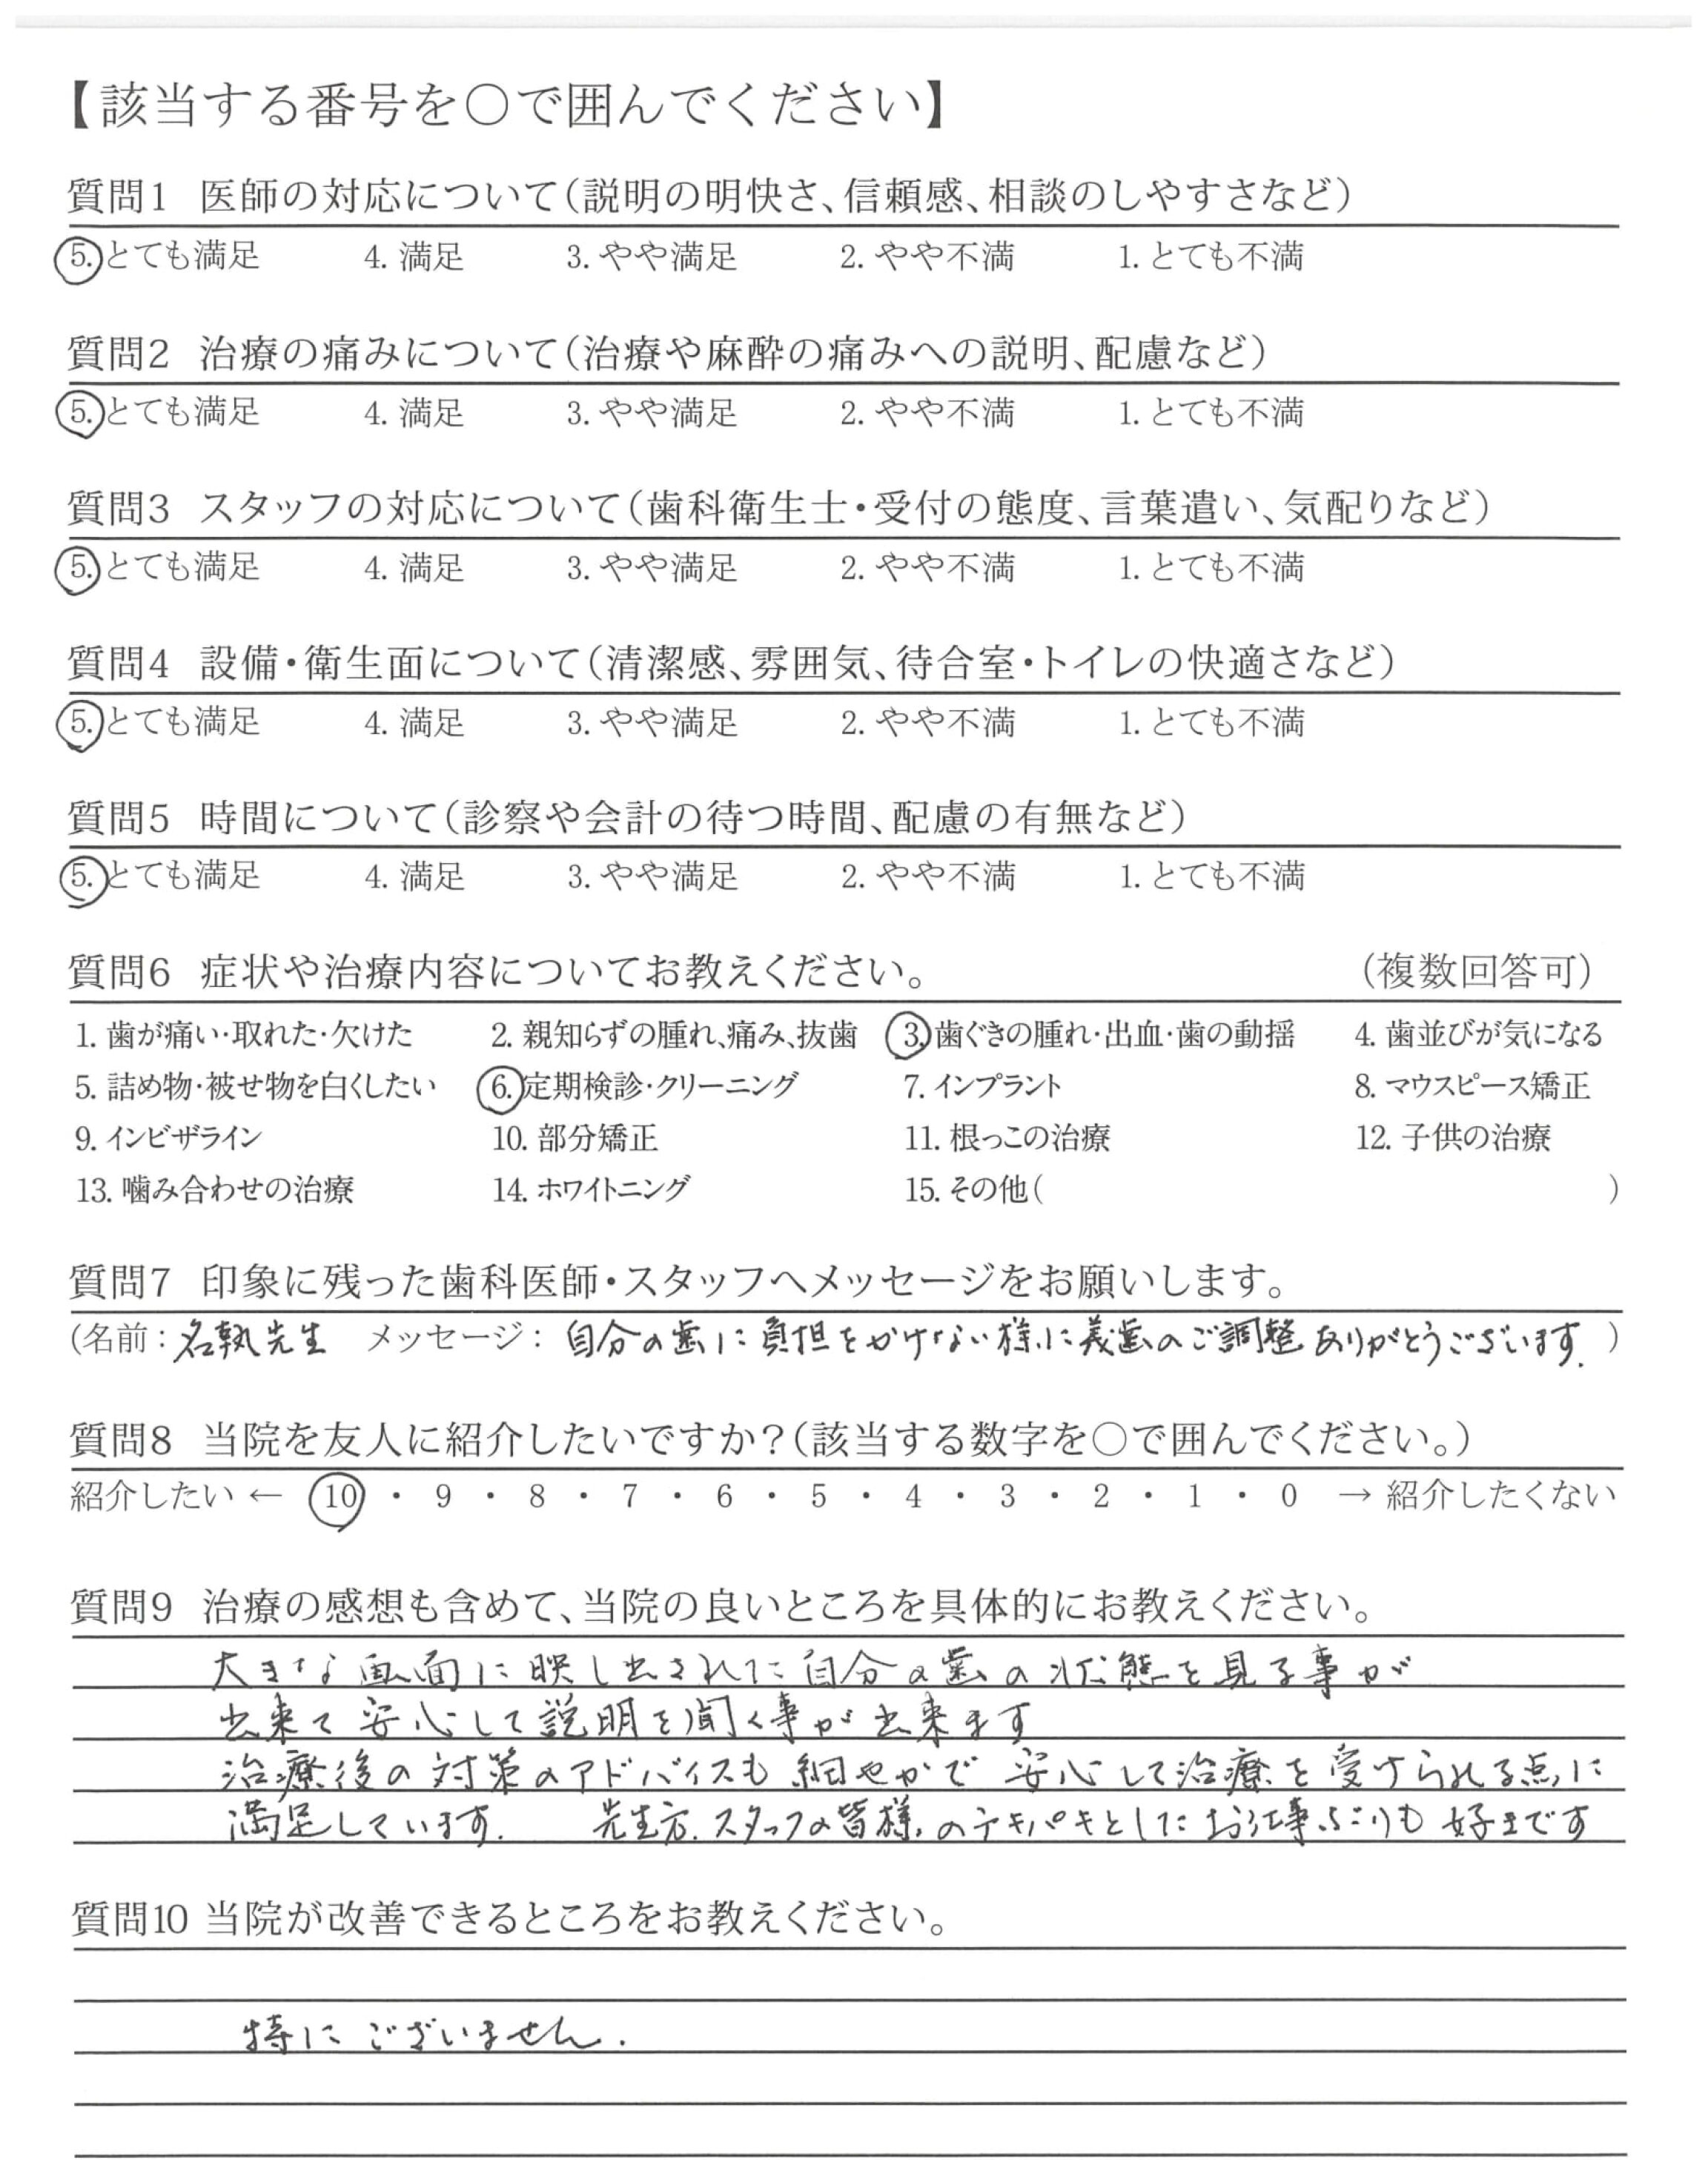 【該当する番号を○で囲んでください】
質問1 医師の対応について(説明の明快さ、信頼感、相談のしやすさなど)
5. とても満足 4. 満足 3. やや満足 2. やや不満 1. とても不満
質問2 治療の痛みについて(治療や麻酔の痛みへの説明、配慮など)
5. とても満足 4. 満足 3. やや満足 2. やや不満 1. とても不満
質問3 スタッフの対応について(歯科衛生士・受付の態度、言葉遣い、気配りなど)
5. とても満足 4. 満足 3. やや満足 2. やや不満 1. とても不満
質問4 設備・衛生面について(清潔感、雰囲気、待合室・トイレの快適さなど)
5. とても満足 4. 満足 3. やや満足 2. やや不満 1. とても不満
質問5 時間について(診察や会計の待つ時間、配慮の有無など)
5. とても満足 4. 満足 3. やや満足 2. やや不満 1. とても不満
質問6 症状や治療内容についてお教えください。 (複数回答可)
1. 歯が痛い・取れた・欠けた 2. 親知らずの腫れ、痛み、抜歯 3. 歯ぐきの腫れ・出血・歯の動揺 4. 歯並びが気になる
5. 詰め物・被せ物を白くしたい 6. 定期検診・クリーニング 7. インプラント 8. マウスピース矯正
9. インビザライン 10. 部分矯正 11. 根っこの治療 12. 子供の治療
13. 噛み合わせの治療 14. ホワイトニング 15. その他( )
質問7 印象に残った歯科医師・スタッフへメッセージをお願いします。
(名前:名執先生 メッセージ:自分の歯に負担をかけない様に義歯のご調整ありがとうございます.)
質問8 当院を友人に紹介したいですか?(該当する数字を○で囲んでください。)
紹介したい ← 10 ・ 9 ・ 8 ・ 7 ・ 6 ・ 5 ・ 4 ・ 3 ・ 2 ・ 1 ・ 0 → 紹介したくない
質問9 治療の感想も含めて、当院の良いところを具体的にお教えください。
大きな画面に映し出された自分の歯の状態を見る事が
出来て安心して説明を聞く事が出来ます
治療後の対策のアドバイスも細やかで 安心して治療を受けられる点に
満足しています. 先生方.スタッフの皆様,のテキパキとしたお仕事ぶりも好きです
質問10 当院が改善できるところをお教えください。
特にございません.